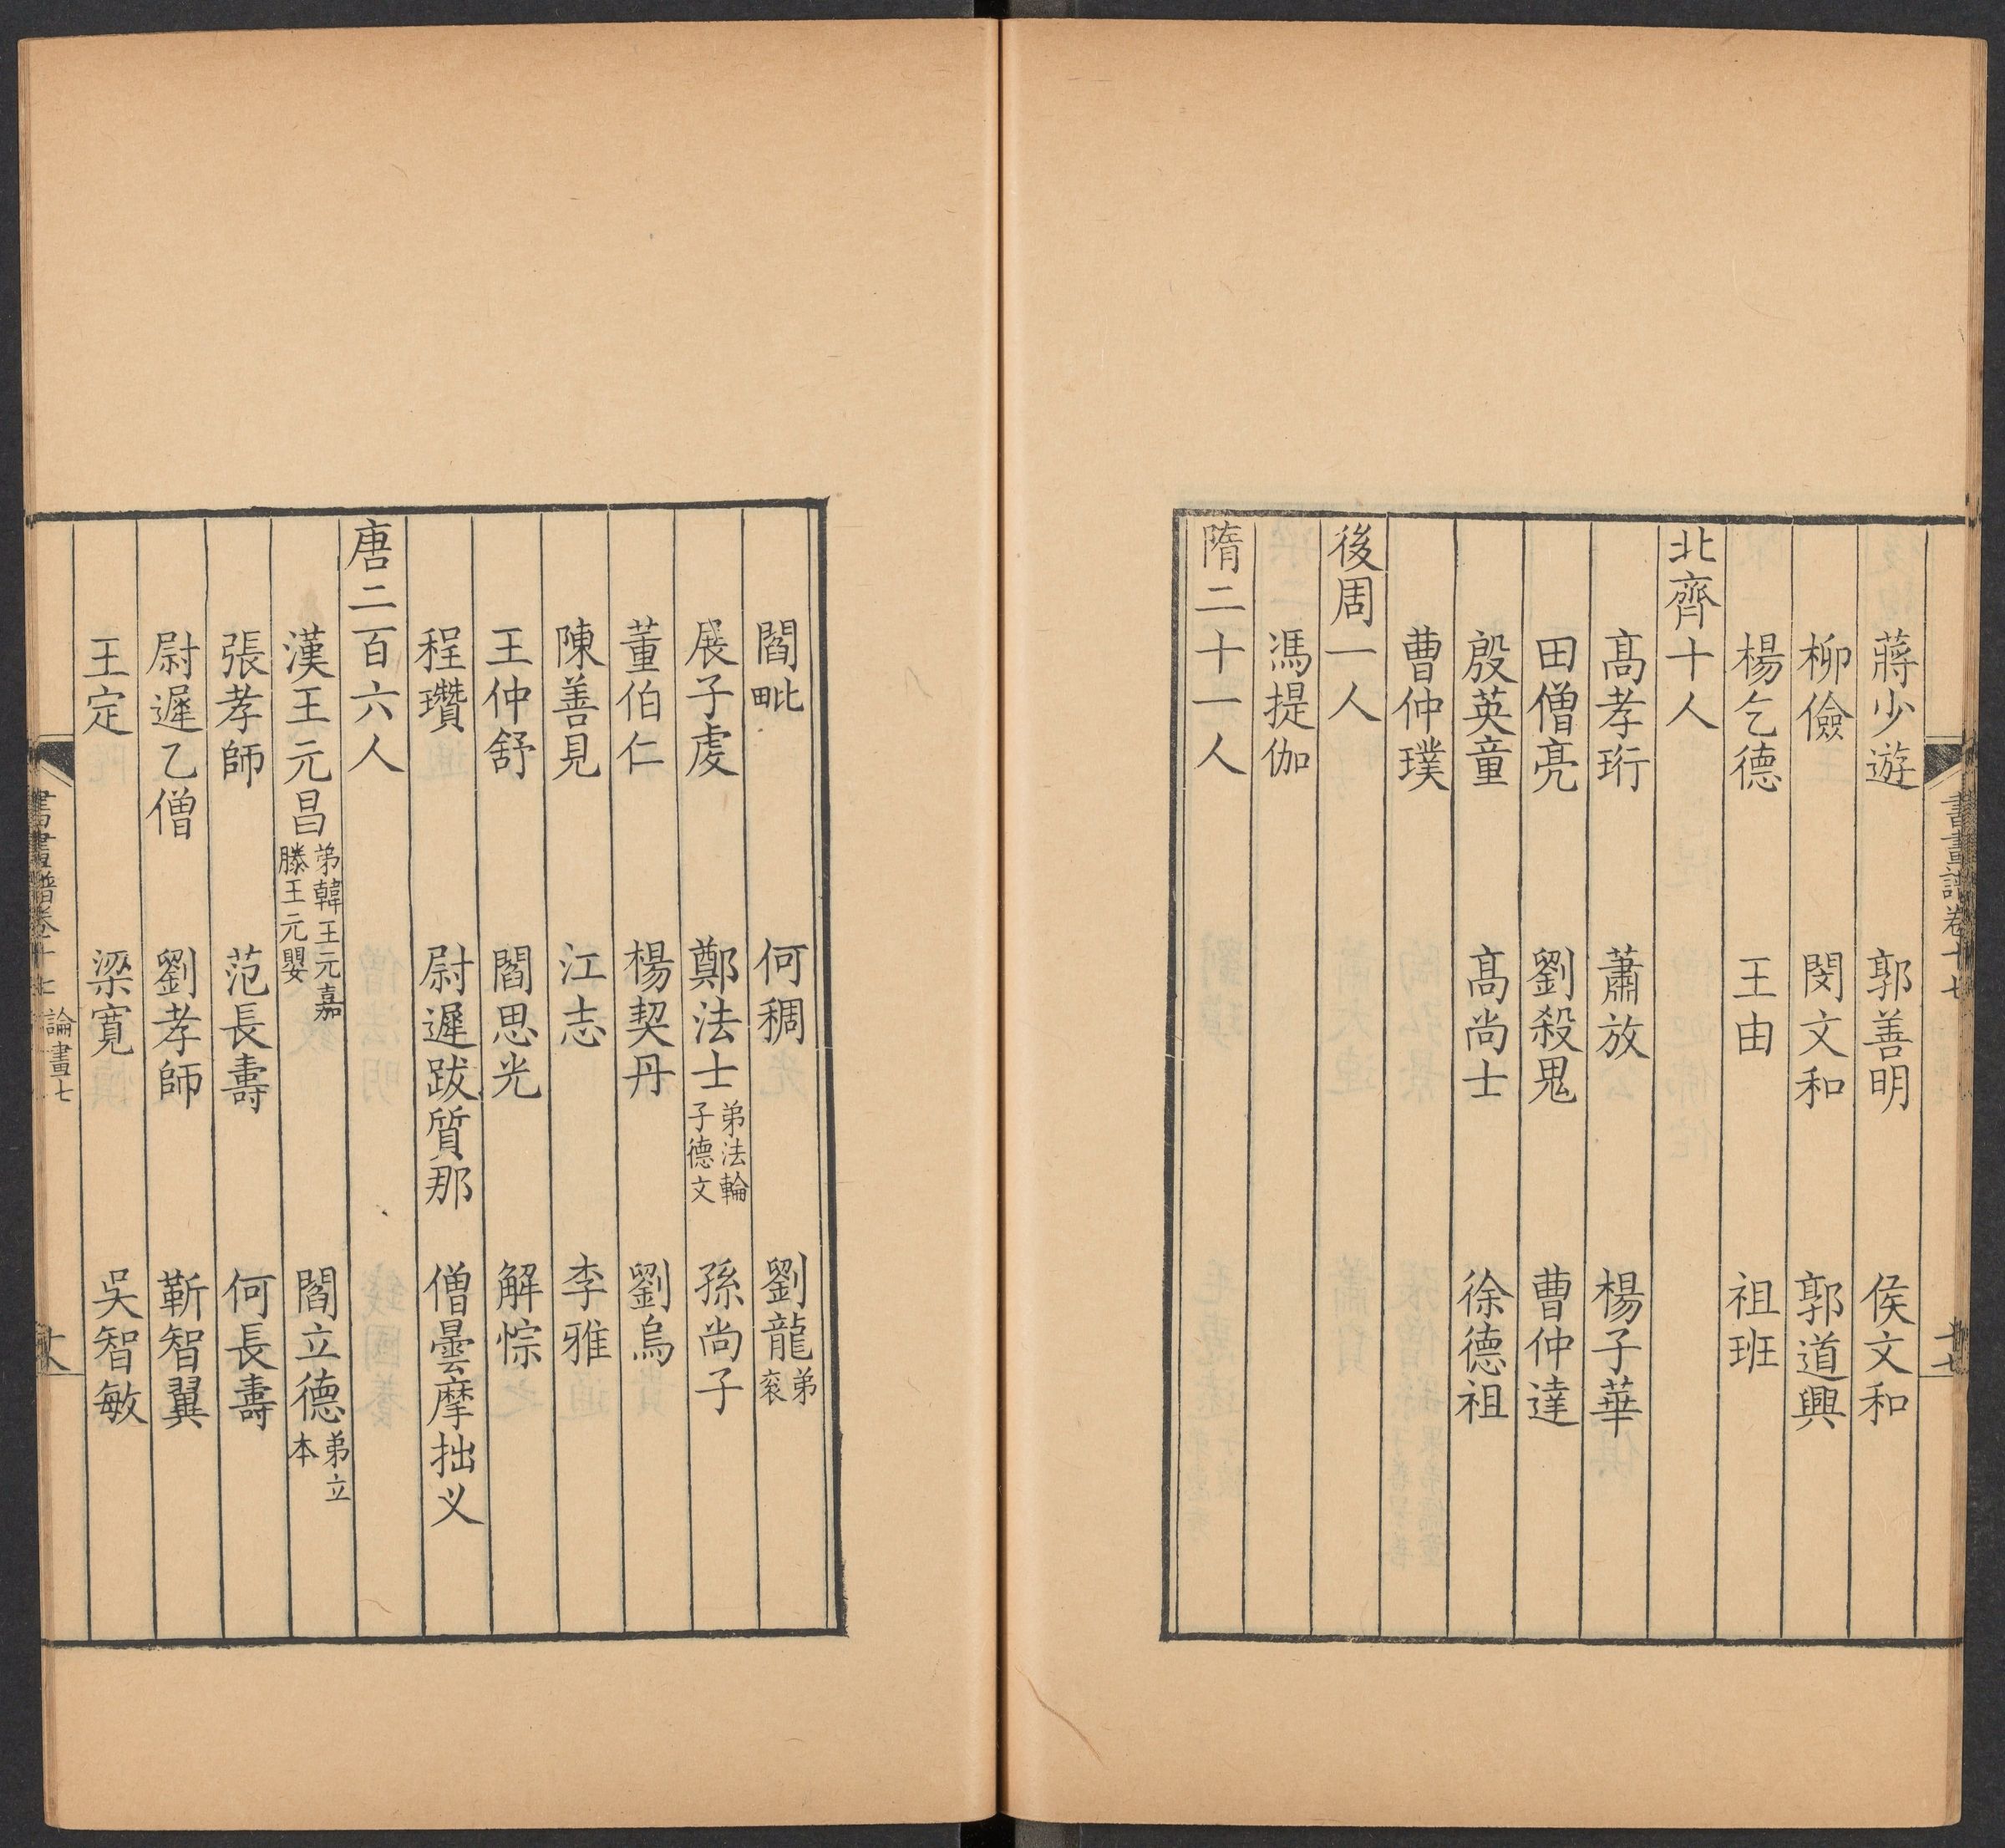 書畫譜卷十七 十七
蔣少遊 郭善明 侯文和
柳儉 閔文和 郭道興
楊乞德 王由 祖班
北齊十人
高孝珩 蕭放 楊子華
田僧亮 劉殺鬼 曹仲達
殷英童 高尚士 徐德祖
曹仲璞
後周一人
馮提伽
隋二十一人
閻毗 何稠 劉龍弟袞
展子虔 鄭法士弟法輪子德文 孫尚子
董伯仁 楊契丹 劉烏
陳善見 江志 李雅
王仲舒 閻思光 解悰
程瓚 尉遲跋質那 僧曇摩拙义
唐二百六人
漢王元昌弟韓王元嘉滕王元嬰 閻立德弟立本
張孝師 范長壽 何長壽
尉遲乙僧 劉孝師 靳智翼
王定 梁寬 吳智敏
書畫譜卷十七 論畫七 十八